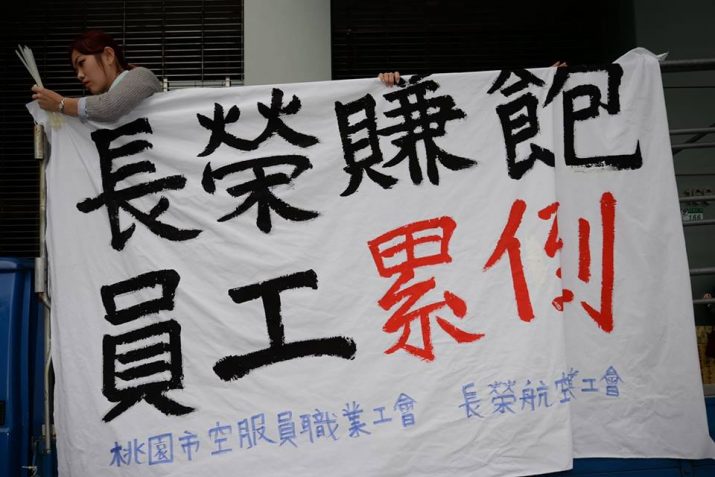 長榮賺飽
員工累倒
桃園市空服員職業工會 長榮航空工會